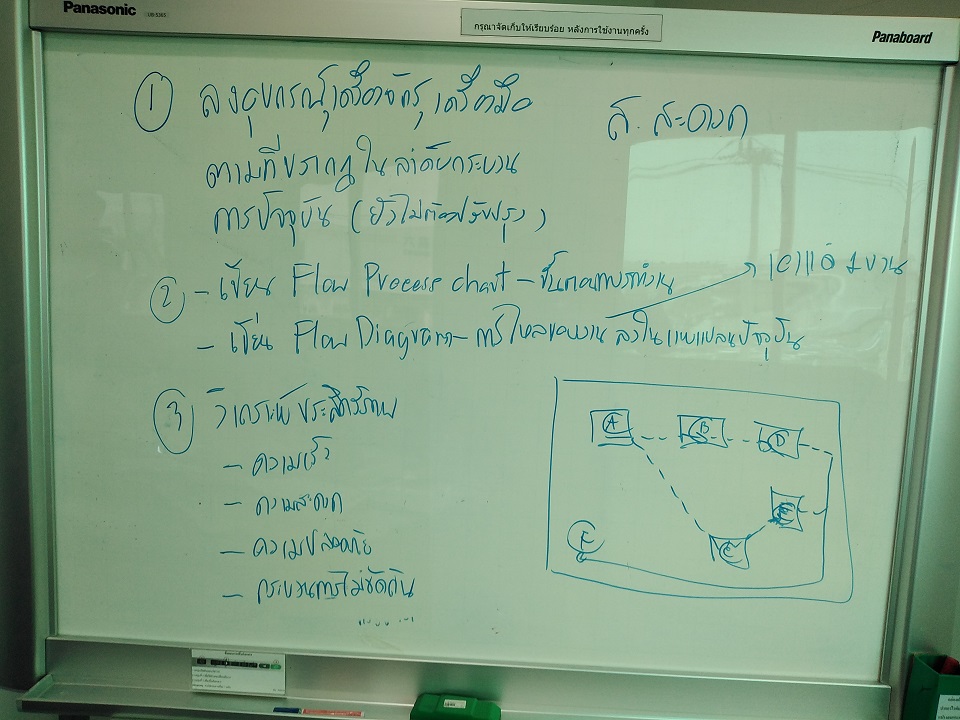 Panasonic
กรุณาจัดเก็บให้เรียบร้อย หลังการใช้งานทุกครั้ง
Panaboard
① ลงอุปกรณ์เครื่องจักร เครื่องมือ
ส. สะดวก
ตามที่ปรากฏในลำดับกระบวน
การปัจจุบัน (ยังไม่ต้องปรับปรุง)
② - เขียน Flow Process chart - ขั้นตอนการทำงาน
- เขียน Flow Diagram - การไหลของงาน ลงในแบบแปลนปัจจุบัน
③ วิเคราะห์ประสิทธิภาพ
- ความเร็ว
- ความสะดวก
- ความปลอดภัย
- กระบวนการไม่ขัดกัน
A B D
E
C
F